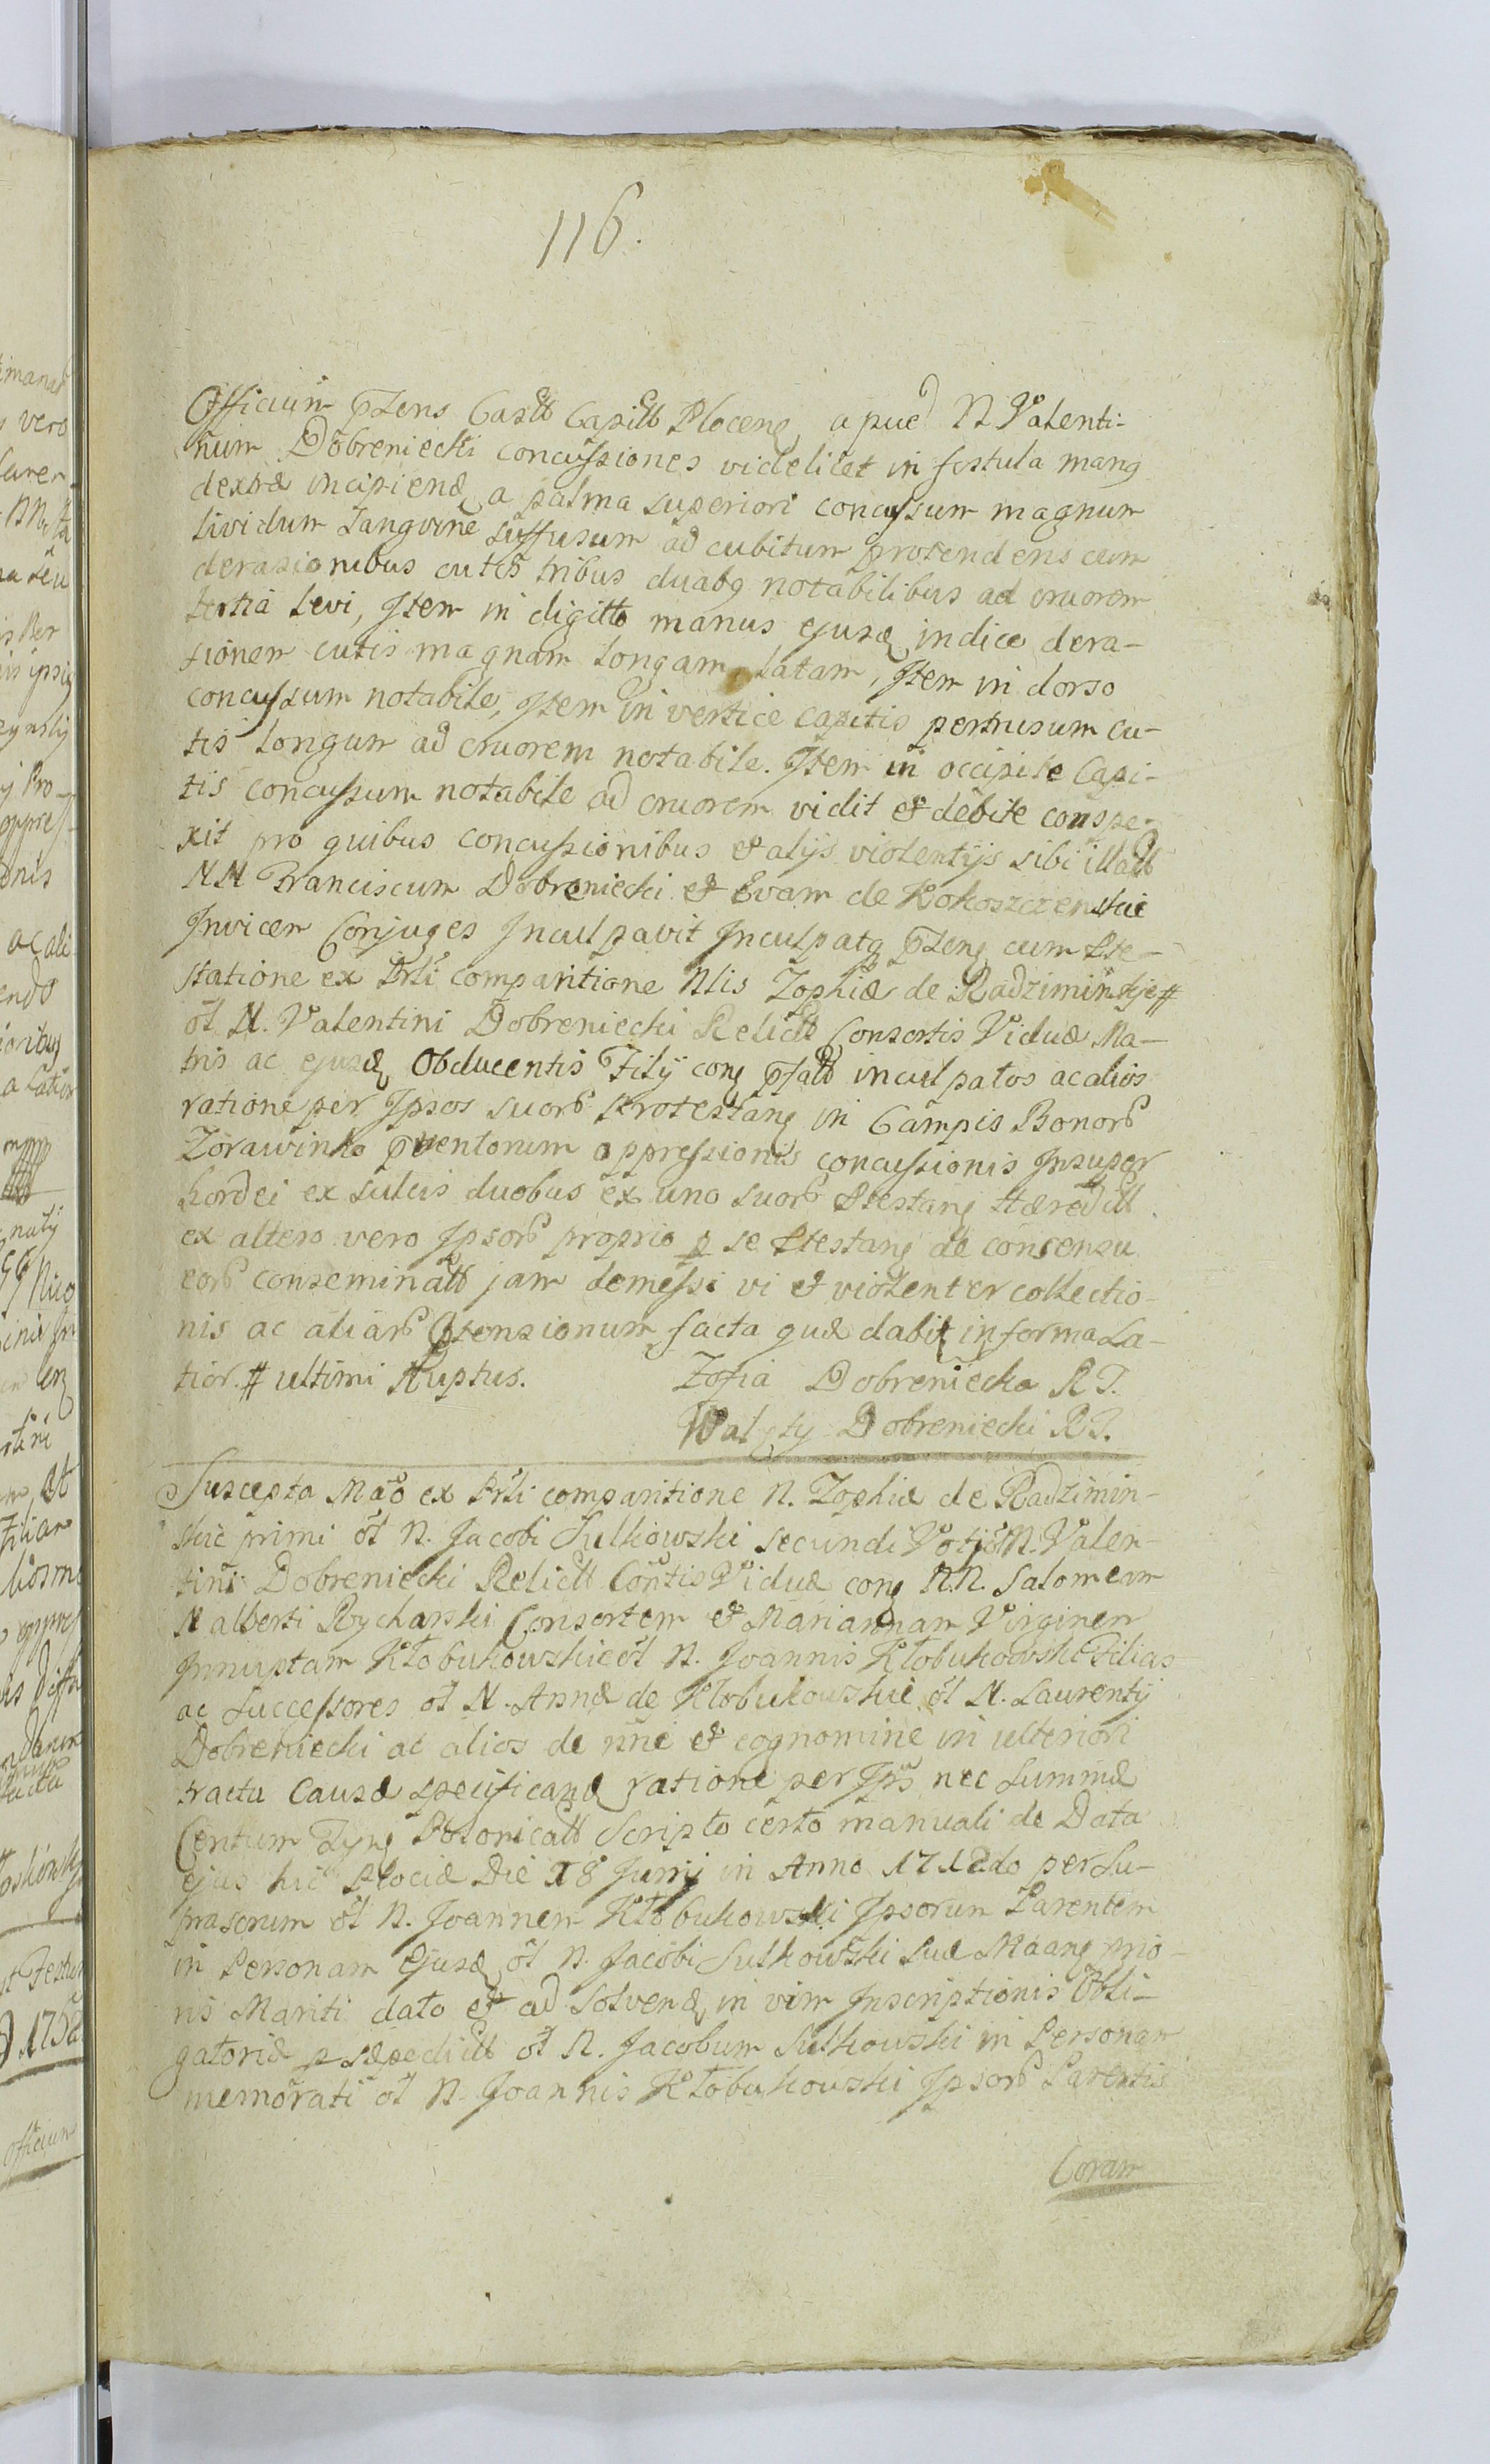 116.
Officium pzens Castt Capitt Plocens, apud N Valenti-
num Dobreniecki concussiones videlicet in fistula mang
dextræ incipiend a palma superiori concussum magnum
lividum Sanguine suffusum ad cubitum protendens cum
derasionibus cutis tribus duabg notabilibus ad cruorem
tertia levi, Item in digitto manus ejusd indice dera-
sionem cutis magnam longam, latam, Item in dorso
concussum notabile, Item in vertice capitis pertusum cu-
tis longum ad cruorem notabile. Item in occipite Capi-
tis concussum notabile ad cruorem vidit et debite conspe-
xit pro quibus concussionibus et alijs violentijs sibi illatt
NN Franciscum Dobreniecki et Evam de Kokoszczenskie
Invicem Conjuges Inculpavit Inculpatq pzens cum Ptte-
statione ex Prli comparitione Nlis Zophiæ de Radziminskje #
ot N. Valentini Dobreniecki Relictt Consortis Viduæ Ma-
tris ac ejusd Obducentis Filij cong pfatt inculpatos ac alios
ratione per Ipsos suorb Protestang in Campis Bonorb
Zorawinko pventorum oppressionis concussionis Insuper
hordei ex sulcis duobus ex uno suorb Ptestang Hæreditt
ex altero vero Ipsorb proprio p se Ptestang de consensu
eorb conseminatt jam demessi vi et violenter collectio-
nis ac aliarb Ptensionum facta quæ dabit in forma La-
tior. # ultimi Ruptus. Zofia Dobreniecka RT.
Walęty Dobreniecki RT.
Suscepta Mao ex Prli comparitione N. Zophiæ de Radzimin-
skie primi ot N. Jacobi Sulkowski secundi Votis N. Valen-
tini Dobreniecki Relictt Contis Viduæ cong N.N. Salomeam
N alberti Rycharski Consortem et Mariannam Virginem
Innuptam Kłobukowskie ot N. Joannis Kłobukowski Filias
ac Successores ot N. Annæ de Kłobukowskie ot N. Laurentij
Dobreniecki ac alios de nne et cognomine in ulteriori
tractu Causæ specificand ratione per Ips nec Summæ
Centum Tynf Polonicatt Scripto certo manuali de Data
ejus hic Plociæ Die 18 Junij in Anno 1712do per Su-
prascrum ot N. Joannem Kłobukowski Ipsorum Parentem
in Personam Ejusd ot N. Jacobi Sulkowski suæ Maang prio-
ris Mariti dato et ad Solvend in vim Inscriptionis Obli-
gatoriæ p sæpedictt ot N. Jacobum Sulkowski in Personam
memorati ot N. Joannis Kłobukowski Ipsorb Parentis
Coram